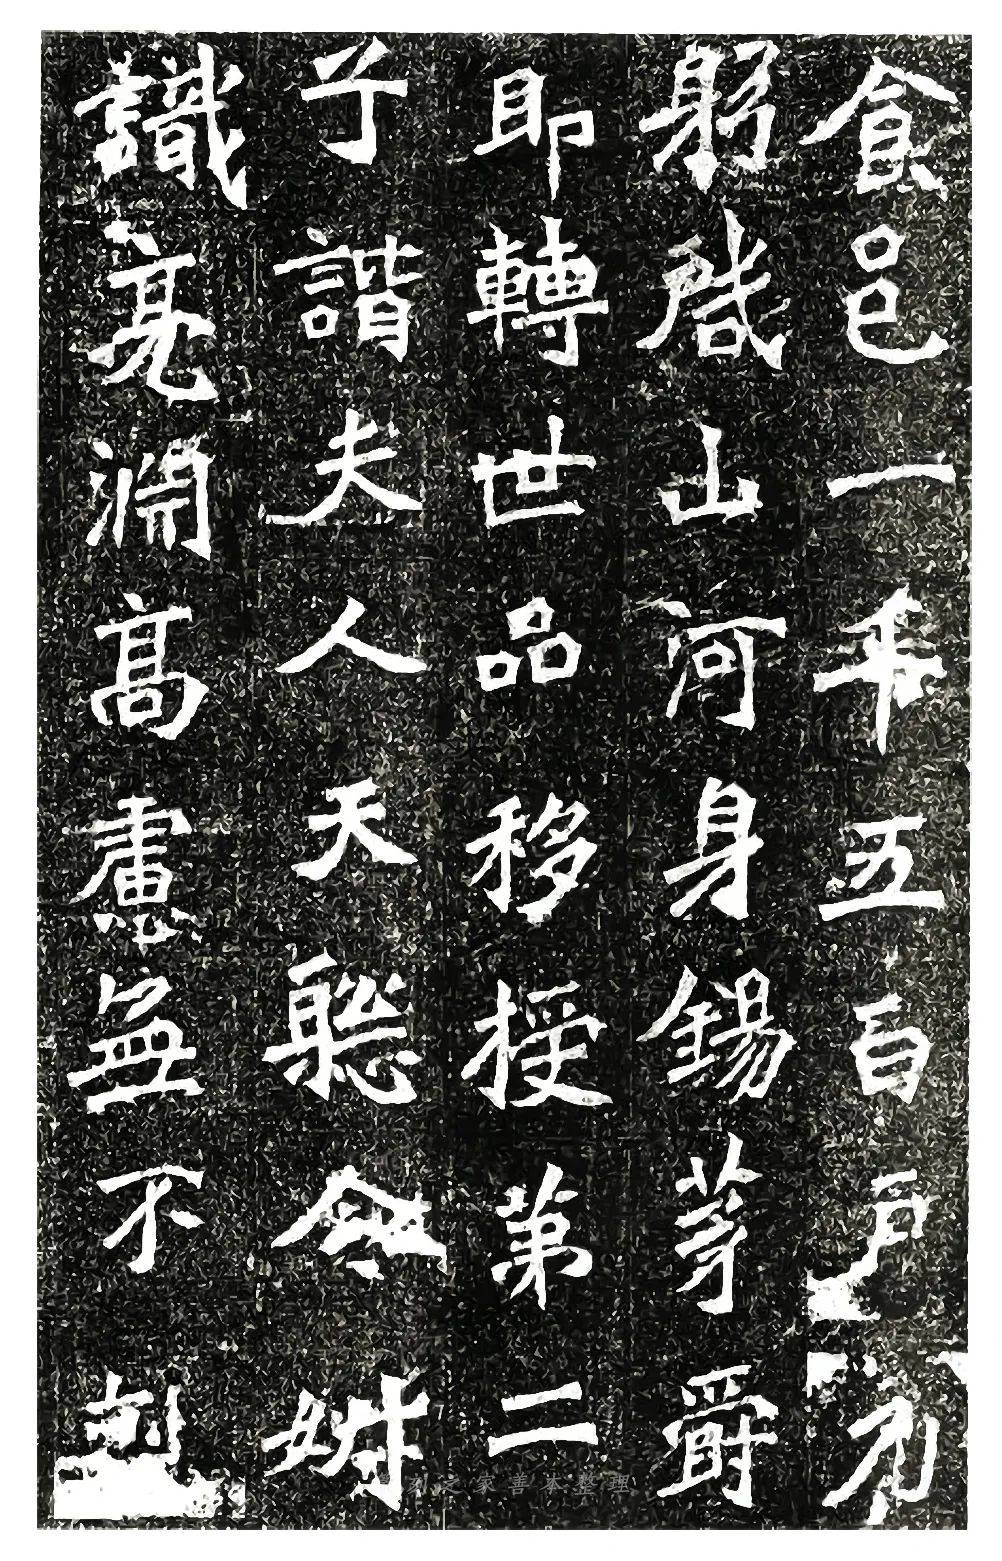 食邑一千五百户
躬啓山河身錫茅爵
即轉世品移授第二
子諧夫人天聰令
識亮淵高慮無不
之家善本整理